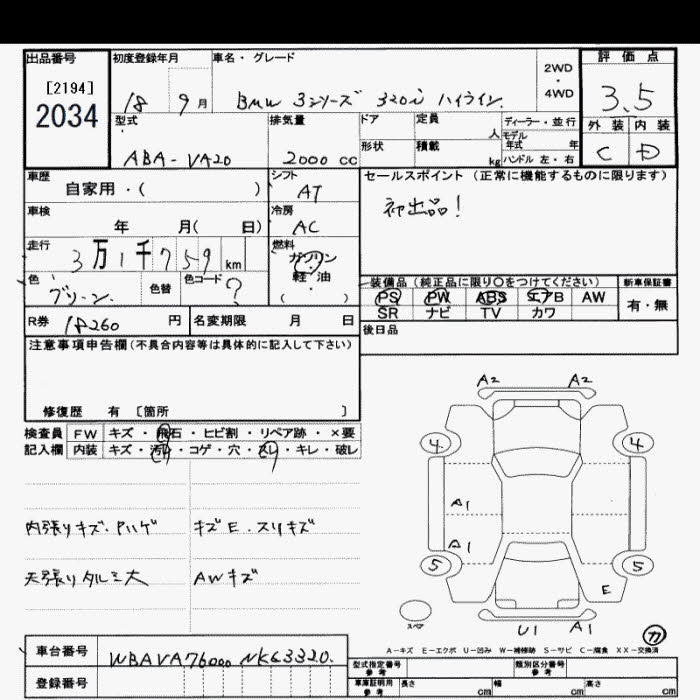 出品番号 初度登録年月 車名・グレード 2WD・4WD 評価点
[2194]
2034
18 9月 BMW 3シリーズ 320i ハイライン 3.5
型式 排気量 ドア 定員 人 ディーラー・並行 外装 内装
モデル年式 年
ABA-VA20 2000cc 形状 積載 kg ハンドル 左・右 C D
車歴 シフト セールスポイント(正常に機能するものに限ります)
自家用・( ) AT 初出品!
車検 年 月( 日) 冷房 AC
走行 3万1千759km 燃料 ガソリン・軽・油( )
色 グリーン 色替 色コード ? 装備品(純正品に限り○をつけてください) 新車保証書
PS PW ABS エアB AW 有・無
SR ナビ TV カワ
R券 18260円 名変期限 月 日 後日品
注意事項申告欄(不具合内容等は具体的に記入して下さい)
修復歴 有 〔箇所 〕
検査員 FW キズ・飛石・ヒビ割・リペア跡・×要
記入欄 内装 キズ・汚れ・コゲ・穴・スレ・キレ・破レ
A2 A2
4 4
A1
A1
5 5
E
内張りキズ・ハゲ キズE・スリキズ
天張りタルミ大 AWキズ
スペア U1 A1 カ
A-キズ E-エクボ U-凹み W-補修跡 S-サビ C-腐食 XX-交換済
車台番号 WBAVA76000NK63320
型式指定番号 参考 類別区分番号 参考
登録番号 車庫証明用 参考 長さ cm 幅 cm 高さ cm